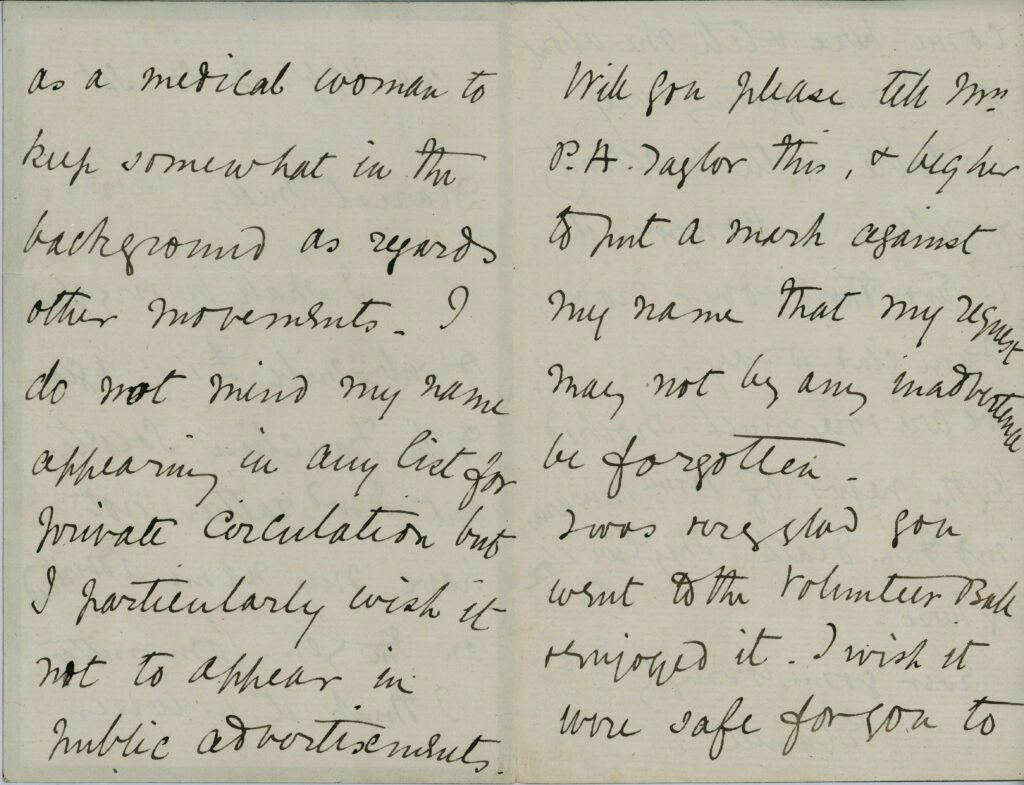 as a medical woman to
keep somewhat in the
background as regards
other movements. I
do not mind my name
appearing in any list for
private circulation but
I particularly wish it
not to appear in
public advertisements.
Will you please tell Mrs
P. A. Taylor this, & beg her
to put a mark against
my name that my request
may not by any inadvertence
be forgotten.
I was very glad you
went to the Volunteer Ball
& enjoyed it. I wish it
were safe for you to